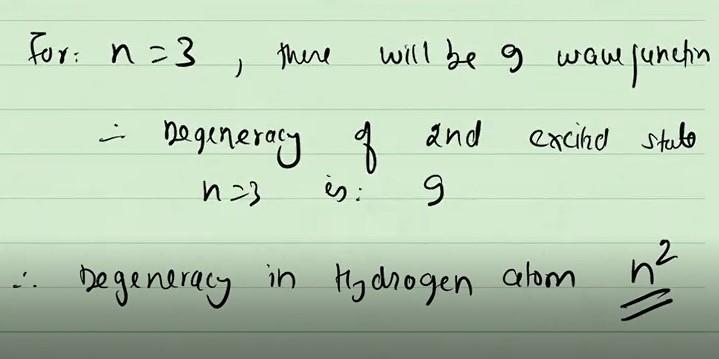 For: n = 3 , there will be 9 wavefunctin
∴ Degeneracy of 2nd excited state
n=3 is: 9
∴ Degeneracy in Hydrogen atom n²